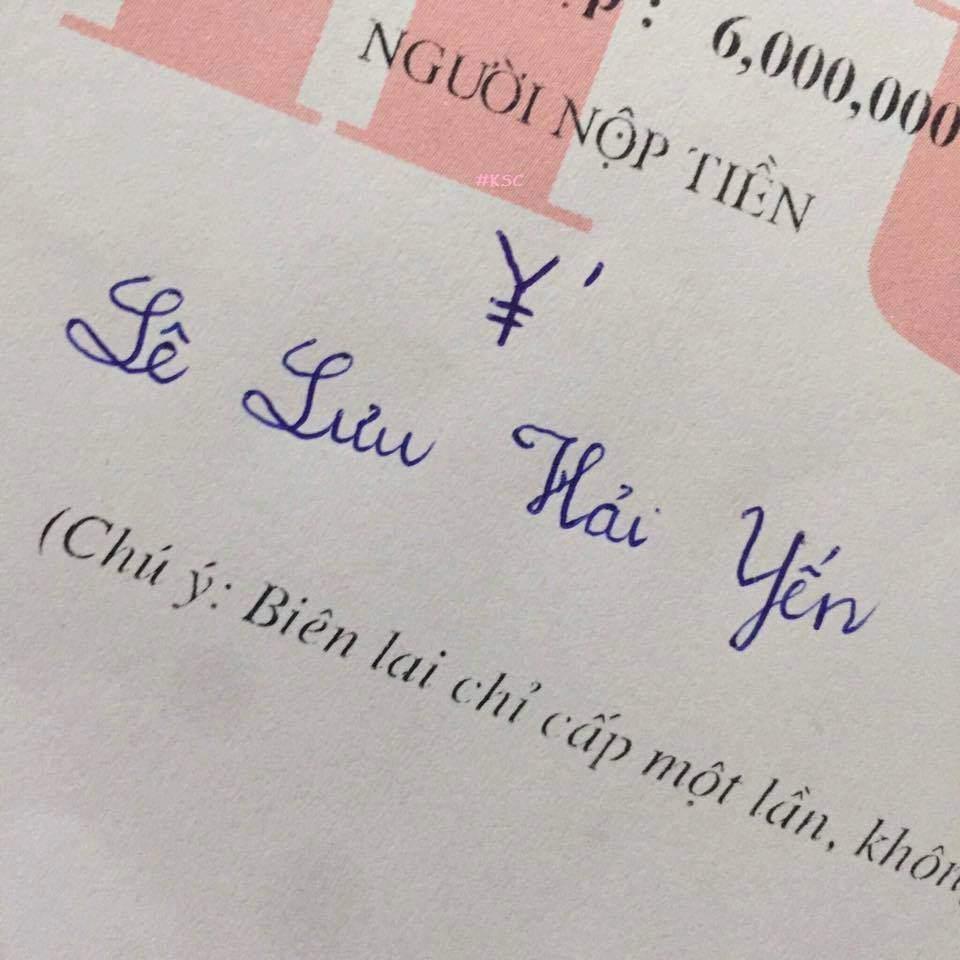 : 6,000,000
NGƯỜI NỘP TIỀN
#KSC
¥'
Lê Lưu Hải Yến
(Chú ý: Biên lai chỉ cấp một lần, không